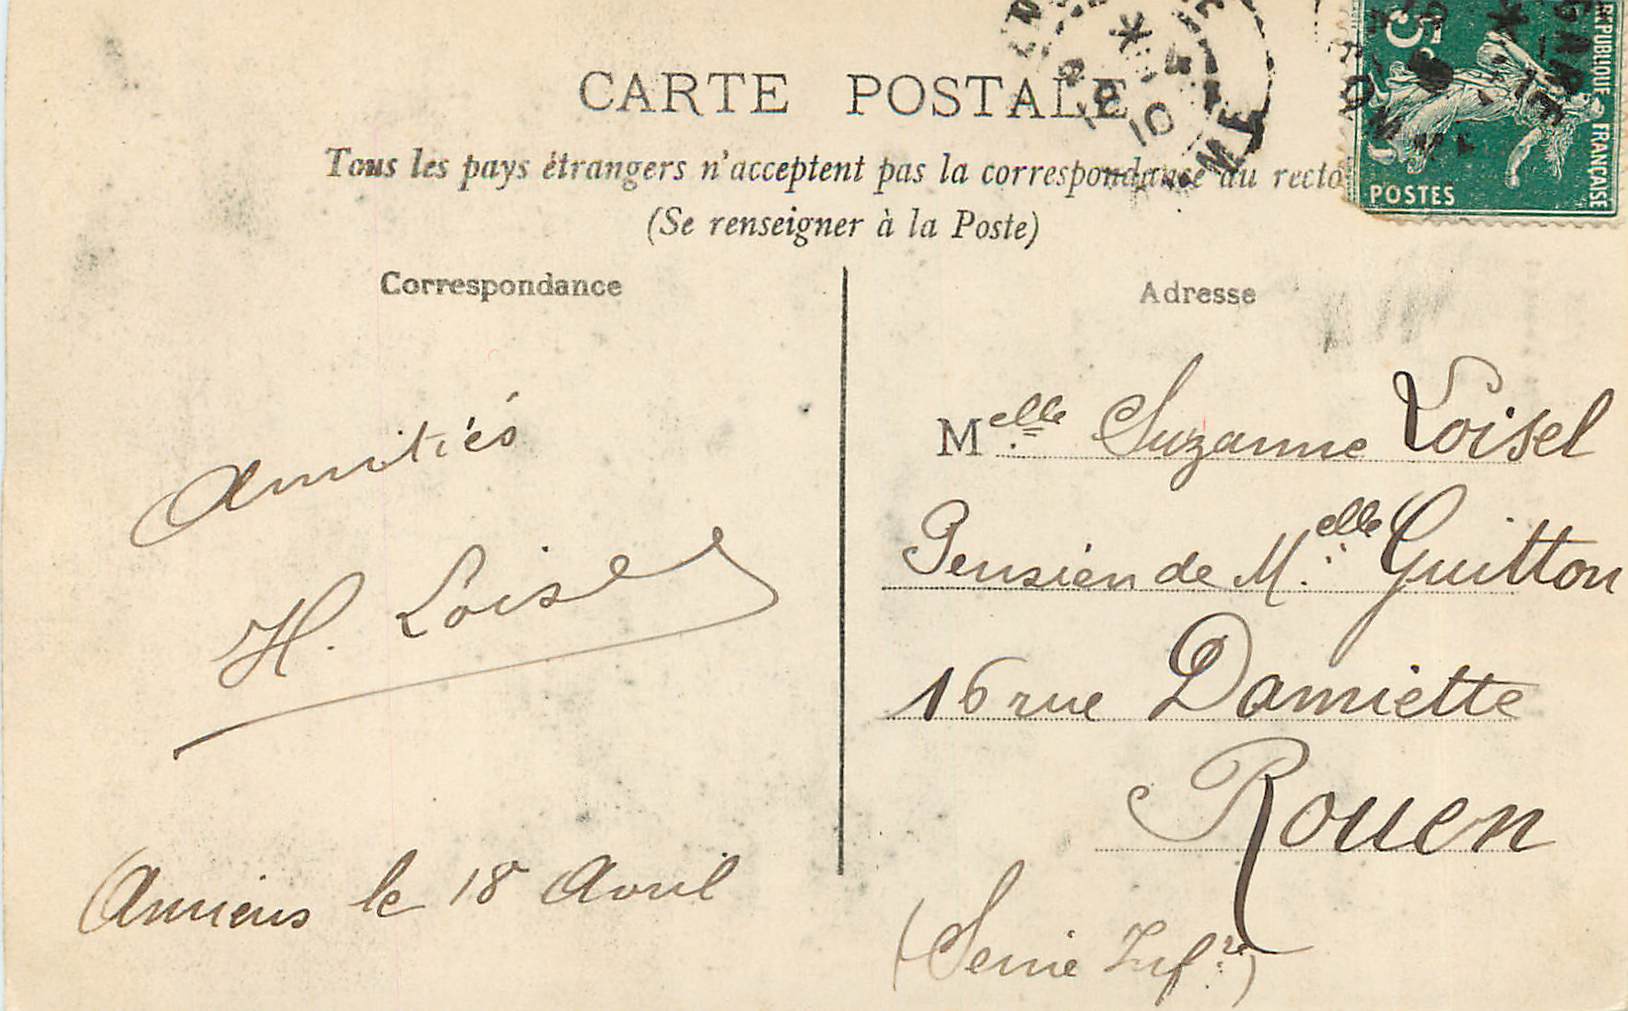 CARTE POSTALE
Tous les pays étrangers n'acceptent pas la correspondance au recto
(Se renseigner à la Poste)
5
RÉPUBLIQUE FRANÇAISE
POSTES
GARE
10
Correspondance
Amitiés
H. Loisel
Amiens le 18 Avril
Adresse
Melle Suzanne Loisel
Pension de Melle Guitton
16 rue Damiette
Rouen
(Seine Infre)